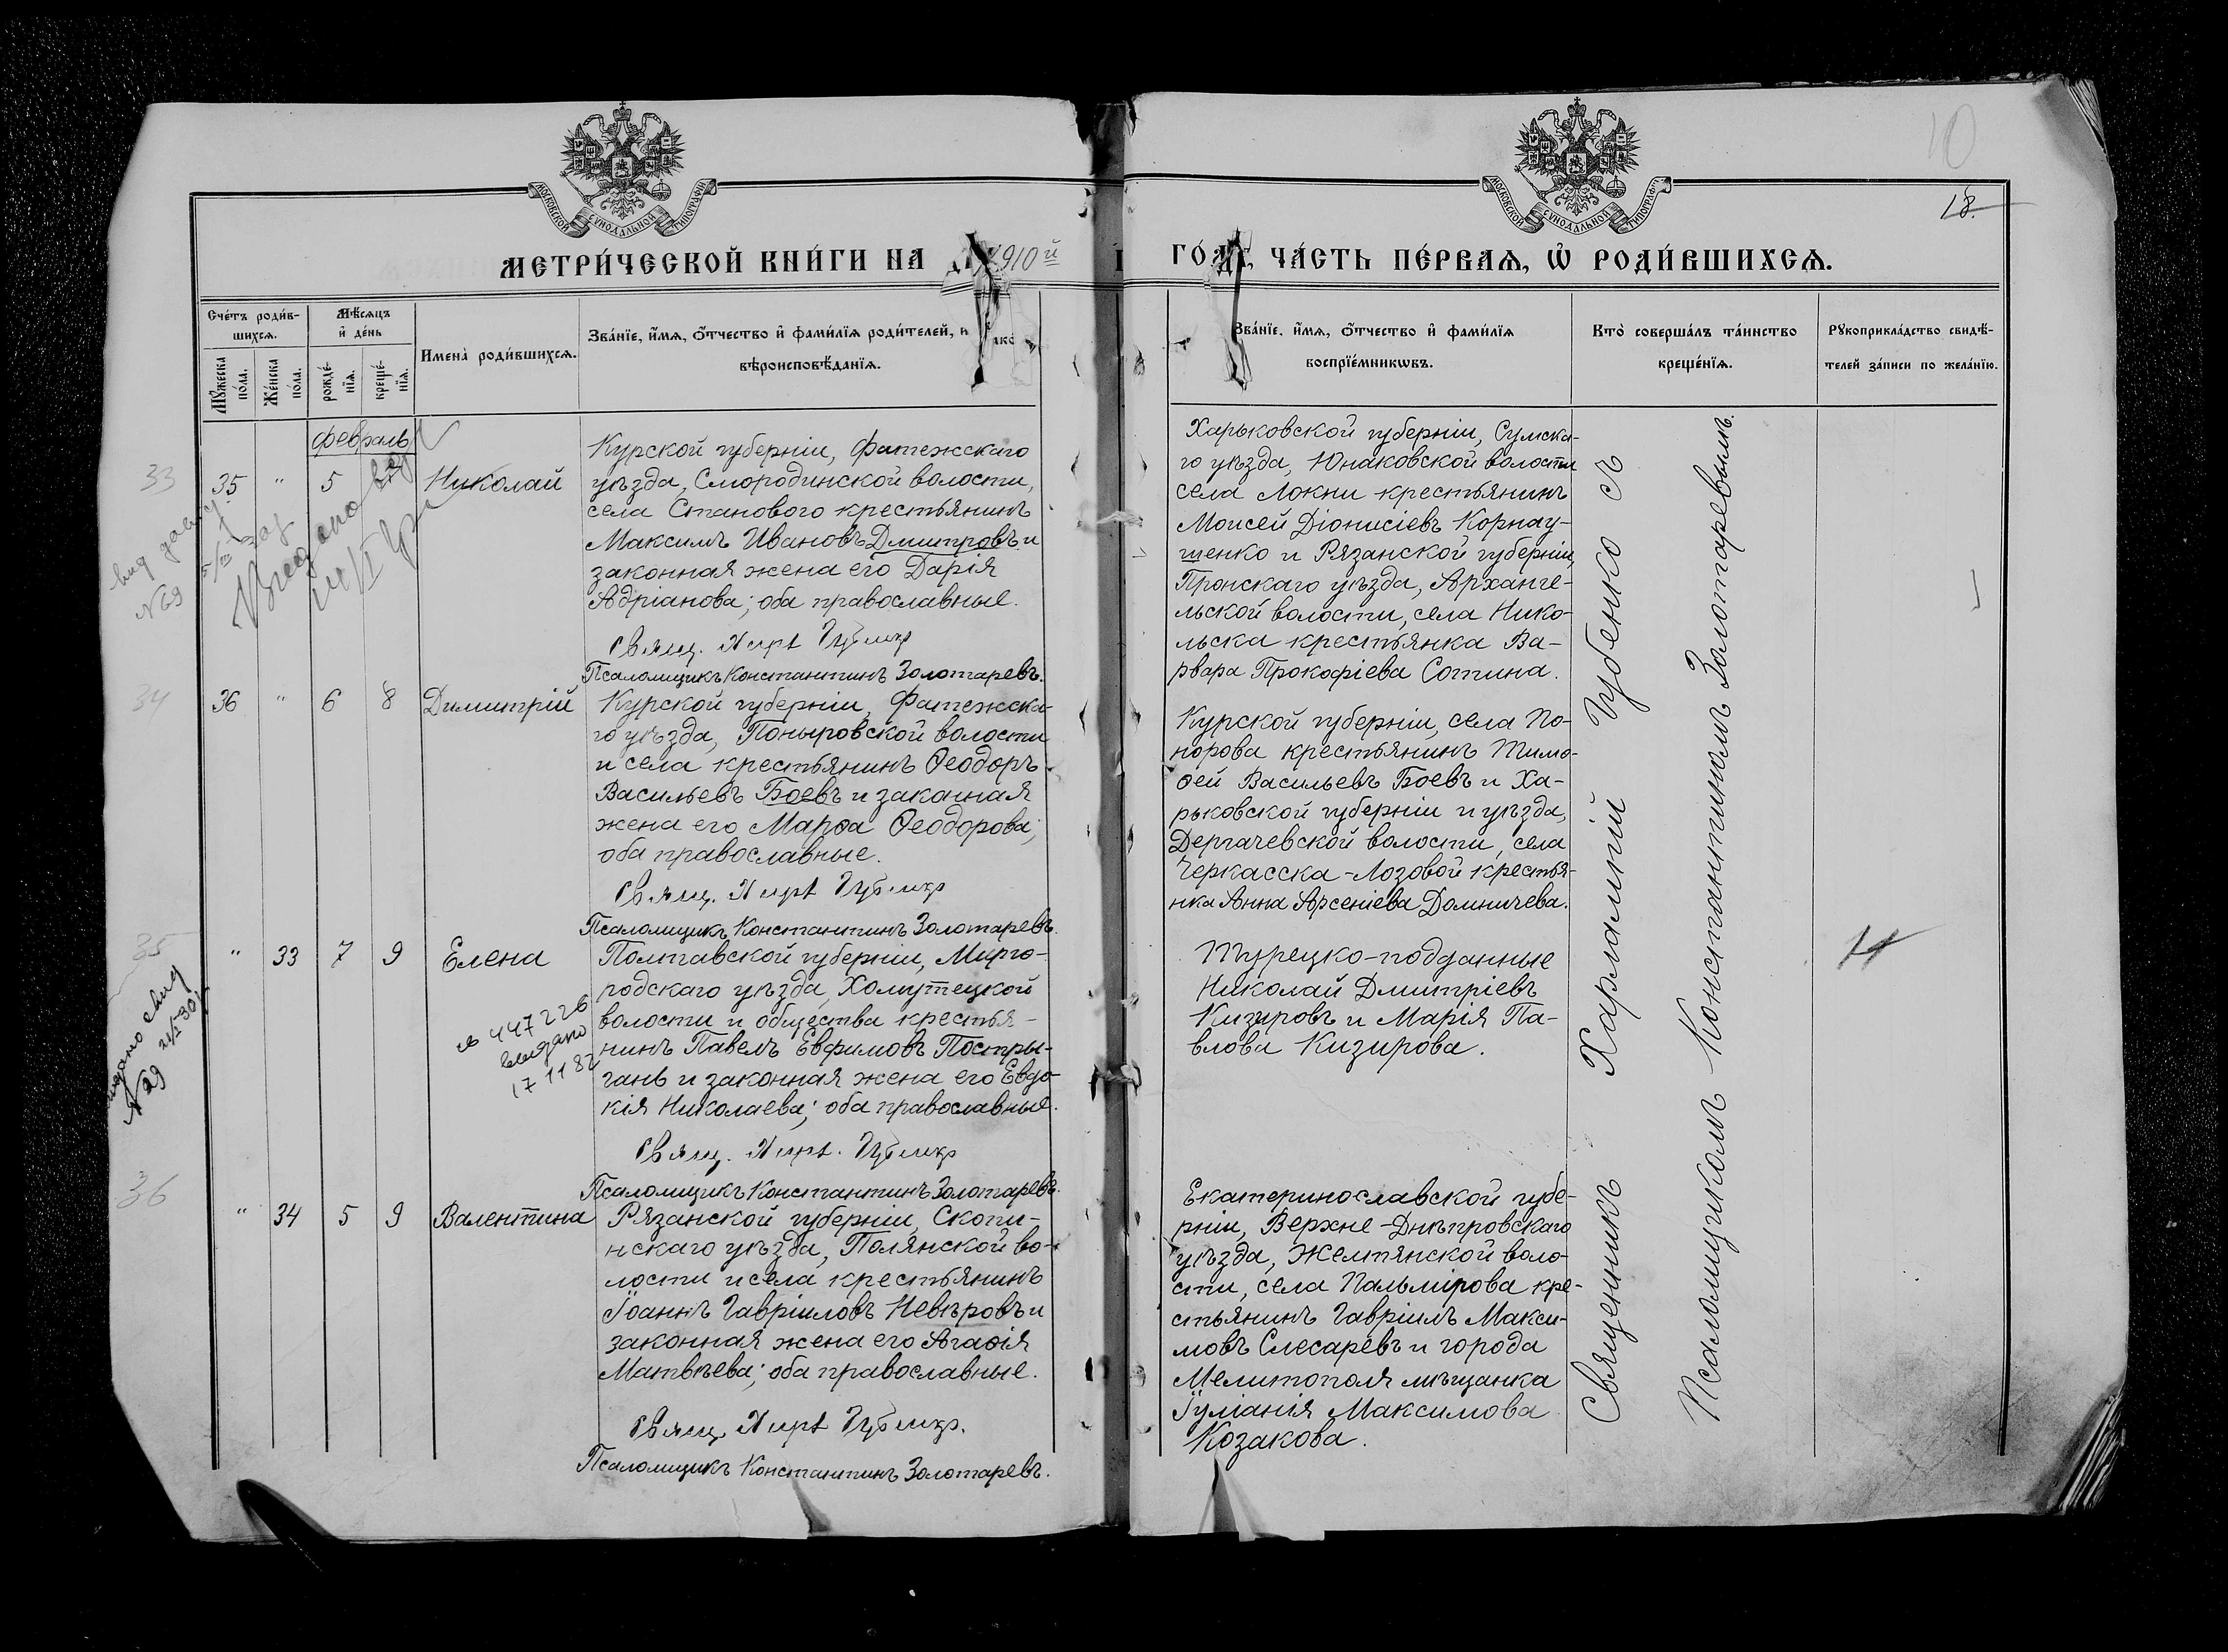 МОСКОВСКОЙ СѴНОДАЛЬНОЙ ТИПОГРАФІИ
МОСКОВСКОЙ СѴНОДАЛЬНОЙ ТИПОГРАФІИ
10
18.
МЕТРИ́ЧЕСКОЙ КНИ́ГИ НА 1910й
ГО́ДЪ, ЧА́СТЬ ПЕ́РВАѦ, Ѡ҆ РОДИ́ВШИХСѦ.
Сче́тъ роди́в-
шихсѧ.
Мꙋ́жеска по́ла.
Же́нска по́ла.
Мѣ́сѧцъ
и҆ де́нь
рожде́-
нїѧ.
креще́-
нїѧ.
Имена̀ роди́вшихсѧ.
Зва́нїе, и҆́мѧ, ѻ҆́тчество и҆ фами́лїѧ роди́телей, и
вѣроисповѣ́данїѧ.
Зва́нїе, и҆́мѧ, ѻ҆́тчество и҆ фами́лїѧ
воспрїе́мникѡвъ.
Кто̀ соверша́лъ та́инство
креще́нїѧ.
Рꙋкоприкла́дство свидѣ́-
телей за́писи по жела́нїю.
февраль
33
35 " 5 Николай
Курской губерніи, Фатежскаго
уѣзда, Смородинской волости,
села Станового крестьянинъ
Максимъ Ивановъ Дмитровъ и
законная жена его Дарія
Адріанова; оба православные.
Свящ. Харл Губенко
Псаломщикъ Константинъ Золотаревъ.
Харьковской губерніи, Сумска-
го уѣзда, Юнаковской волости
села Локни крестьянинъ
Моисей Діонисіевъ Корнау-
шенко и Рязанской губерніи,
Пронскаго уѣзда, Арханге-
льской волости, села Нико-
льска крестьянка Ва-
рвара Прокофіева Сотина.
№69
34
36 " 6 8 Димитрій
Курской губерніи, Фатежска-
го уѣзда, Поныровской волости
и села крестьянинъ Ѳеодоръ
Васильевъ Боевъ и законная
жена его Марѳа Ѳеодорова;
оба православные.
Свящ. Харл Губенко
Псаломщикъ Константинъ Золотаревъ.
Курской губерніи, села По-
норова крестьянинъ Тимо-
ѳей Васильевъ Боевъ и Ха-
рьковской губерніи и уѣзда,
Дергачевской волости, села
Черкасска-Лозовой крестья-
нка Анна Арсеніева Домничева.
35
" 33 7 9 Елена
Полтавской губерніи, Мирго-
родскаго уѣзда, Хомутецкой
волости и общества крестья-
нинъ Павелъ Евфимовъ Постры-
гань и законная жена его Евдо-
кія Николаева; оба православные.
Свящ. Харл. Губенко
Псаломщикъ Константинъ Золотаревъ.
Турецко-подданные
Николай Дмитріевъ
Кизировъ и Марія Па-
влова Кизирова.
447226
выдано
17 11 82
№29
36
" 34 5 9 Валентина
Рязанской губерніи, Скопи-
нскаго уѣзда, Полянской во-
лости и села крестьянинъ
Іоаннъ Гавріиловъ Невѣровъ и
законная жена его Агаѳія
Матвѣева; оба православные.
Свящ. Харл Губенко.
Псаломщикъ Константинъ Золотаревъ.
Екатеринославской губе-
рніи, Верхне-Днѣпровскаго
уѣзда, Желтянской воло-
сти, села Пальмірова кре-
стьянинъ Гавріилъ Макси-
мовъ Слесаревъ и города
Мелитополя мѣщанка
Іуліанія Максимова
Козакова.
Священникъ Харлампій Губенко съ
Псаломщикомъ Константиномъ Золотаревымъ.